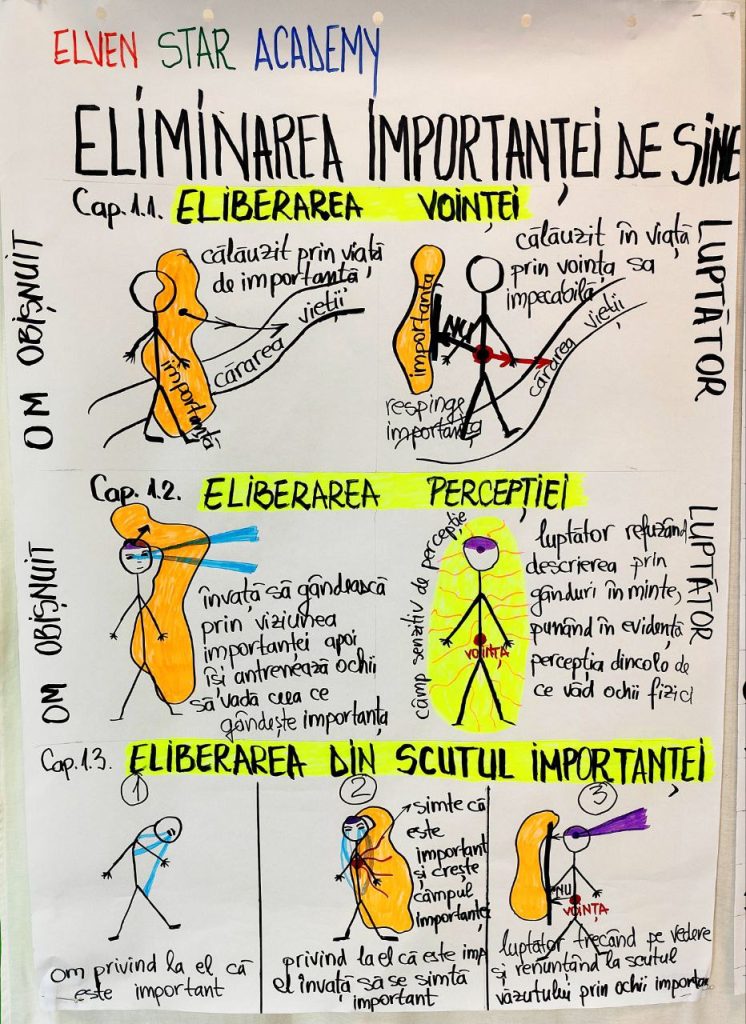 ELVEN STAR ACADEMY
ELIMINAREA IMPORTANȚEI DE SINE
Cap. 1.1. ELIBERAREA VOINȚEI
OM OBIȘNUIT
călăuzit prin viață
de importanță
cărarea vieții
importanță
importanța
NU
respinge
importanța
călăuzit în viață
prin voința sa
impecabilă
cărarea vieții
LUPTĂTOR
Cap. 1.2. ELIBERAREA PERCEPȚIEI
OM OBIȘNUIT
învață să gândească
prin viziunea
importanței apoi
își antrenează ochii
să vadă ceea ce
gândește importanța
câmp senzitiv de percepție
VOINȚA
luptător refuzând
descrierea prin
gânduri în minte,
punând în evidență
percepția dincolo de
ce văd ochii fizici
LUPTĂTOR
Cap. 1.3. ELIBERAREA DIN SCUTUL IMPORTANȚEI
1
om privind la el că
este important
2
simte că
este
important
și crește
câmpul
importanței
privind la el că este imp
el învață să se simtă
important
3
NU
VOINȚA
luptător trecând pe vedere
și renunțând la scutul
văzutului prin ochii importan